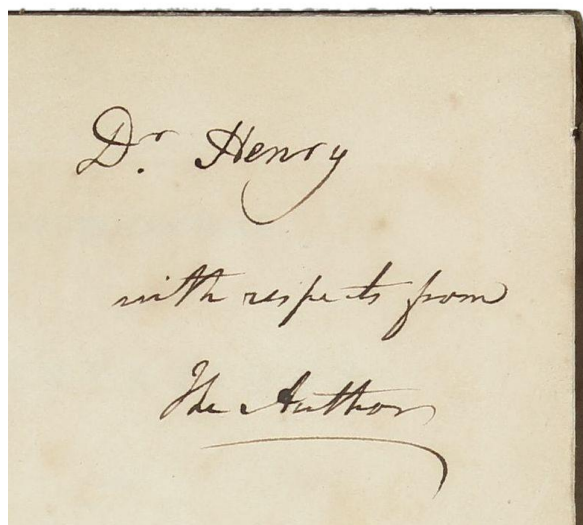 Dr. Henry
with respects from
The Author